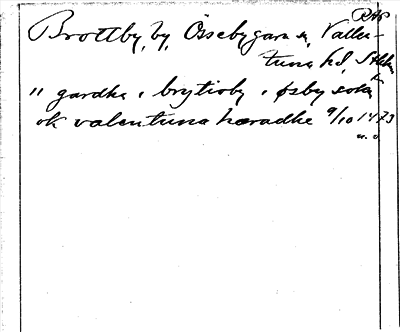 RAP
Brottby, by, Össebygarn sn, Vallen-
tuna hd, Sthlm
"gardhe i brytioby i øsby sokn
ok valentuna hæradhe 9/10 1473